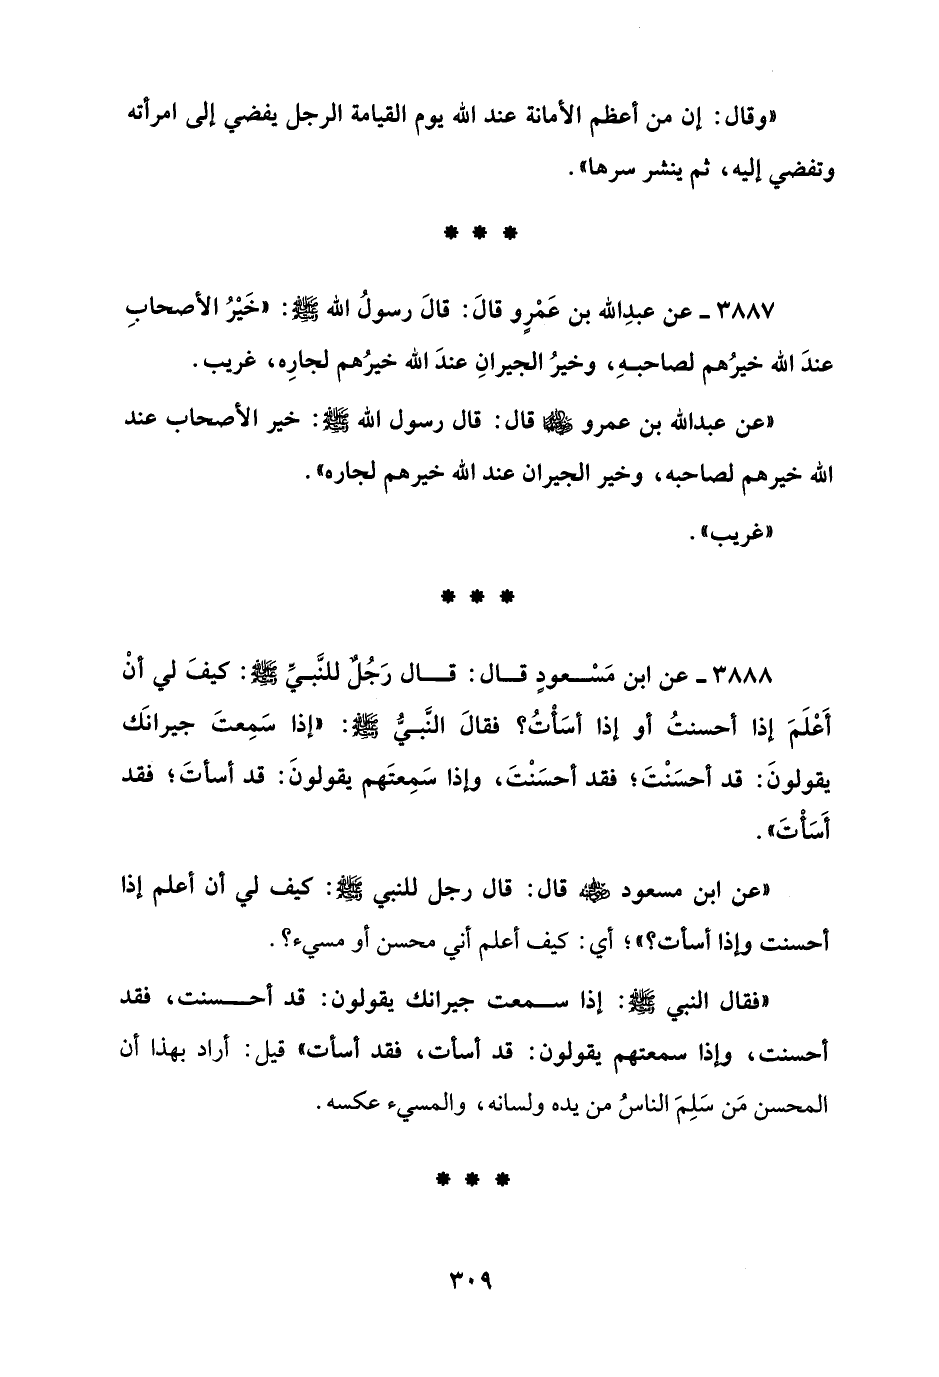 «وقال: إن من أعظم الأمانة عند الله يوم القيامة الرجل يفضي إلى امرأته
وتفضي إليه، ثم ينشر سرها».
* * *
٣٨٨٧ ـ عن عبدِالله بن عَمْرٍو قالَ: قالَ رسولُ الله ﷺ: «خَيْرُ الأصحابِ
عندَ الله خيرُهم لصاحبـهِ، وخيرُ الجيرانِ عندَ الله خيرُهم لجارِه، غريب.
«عن عبدالله بن عمرو ﵁ قال: قال رسول الله ﷺ: خير الأصحاب عند
الله خيرهم لصاحبه، وخير الجيران عند الله خيرهم لجاره».
«غريب».
* * *
٣٨٨٨ ـ عن ابن مَسْـعودٍ قـال: قـال رَجُلٌ للنَّبـيِّ ﷺ: كيفَ لي أنْ
أَعْلَمَ إذا أحسنتُ أو إذا أسَأْتُ؟ فقالَ النَّبـيُّ ﷺ: «إذا سَمِعتَ جيرانَك
يقولونَ: قد أحسَنْتَ؛ فقد أحسَنْتَ، وإذا سَمِعتَهم يقولونَ: قد أسأتَ؛ فقد
أَسَأْتَ».
«عن ابن مسعود ﵁ قال: قال رجل للنبي ﷺ: كيف لي أن أعلم إذا
أحسنت وإذا أسأت؟»؛ أي: كيف أعلم أني محسن أو مسيء؟.
«فقال النبي ﷺ: إذا سـمعت جيرانك يقولون: قد أحـسنت، فقد
أحسنت، وإذا سمعتهم يقولون: قد أسأت، فقد أسأت» قيل: أراد بهذا أن
المحسن مَن سَلِمَ الناسُ من يده ولسانه، والمسيء عكسه.
* * *
٣٠٩